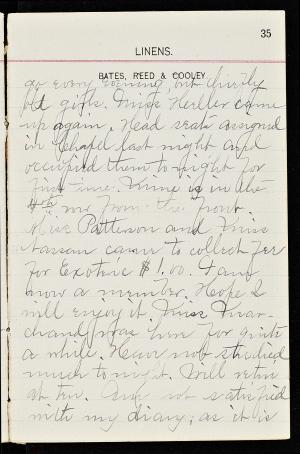 35
LINENS.
BATES, REED & COOLEY
go every evening, but chiefly
old girls. Miss Heller came
up again. Head seats assigned
in Chapel last night and
occupied them to night for
first time. Mine is in the
4th row from the front.
Miss Patterson and Miss
came to collect fee
for Exoteric $1.00. I am
now a member. Hope I
will enjoy it. Miss Mar-
chand was here for quite
a while. Have not studied
much to night. Will retire
at ten. Am not satisfied
with my diary; as it is